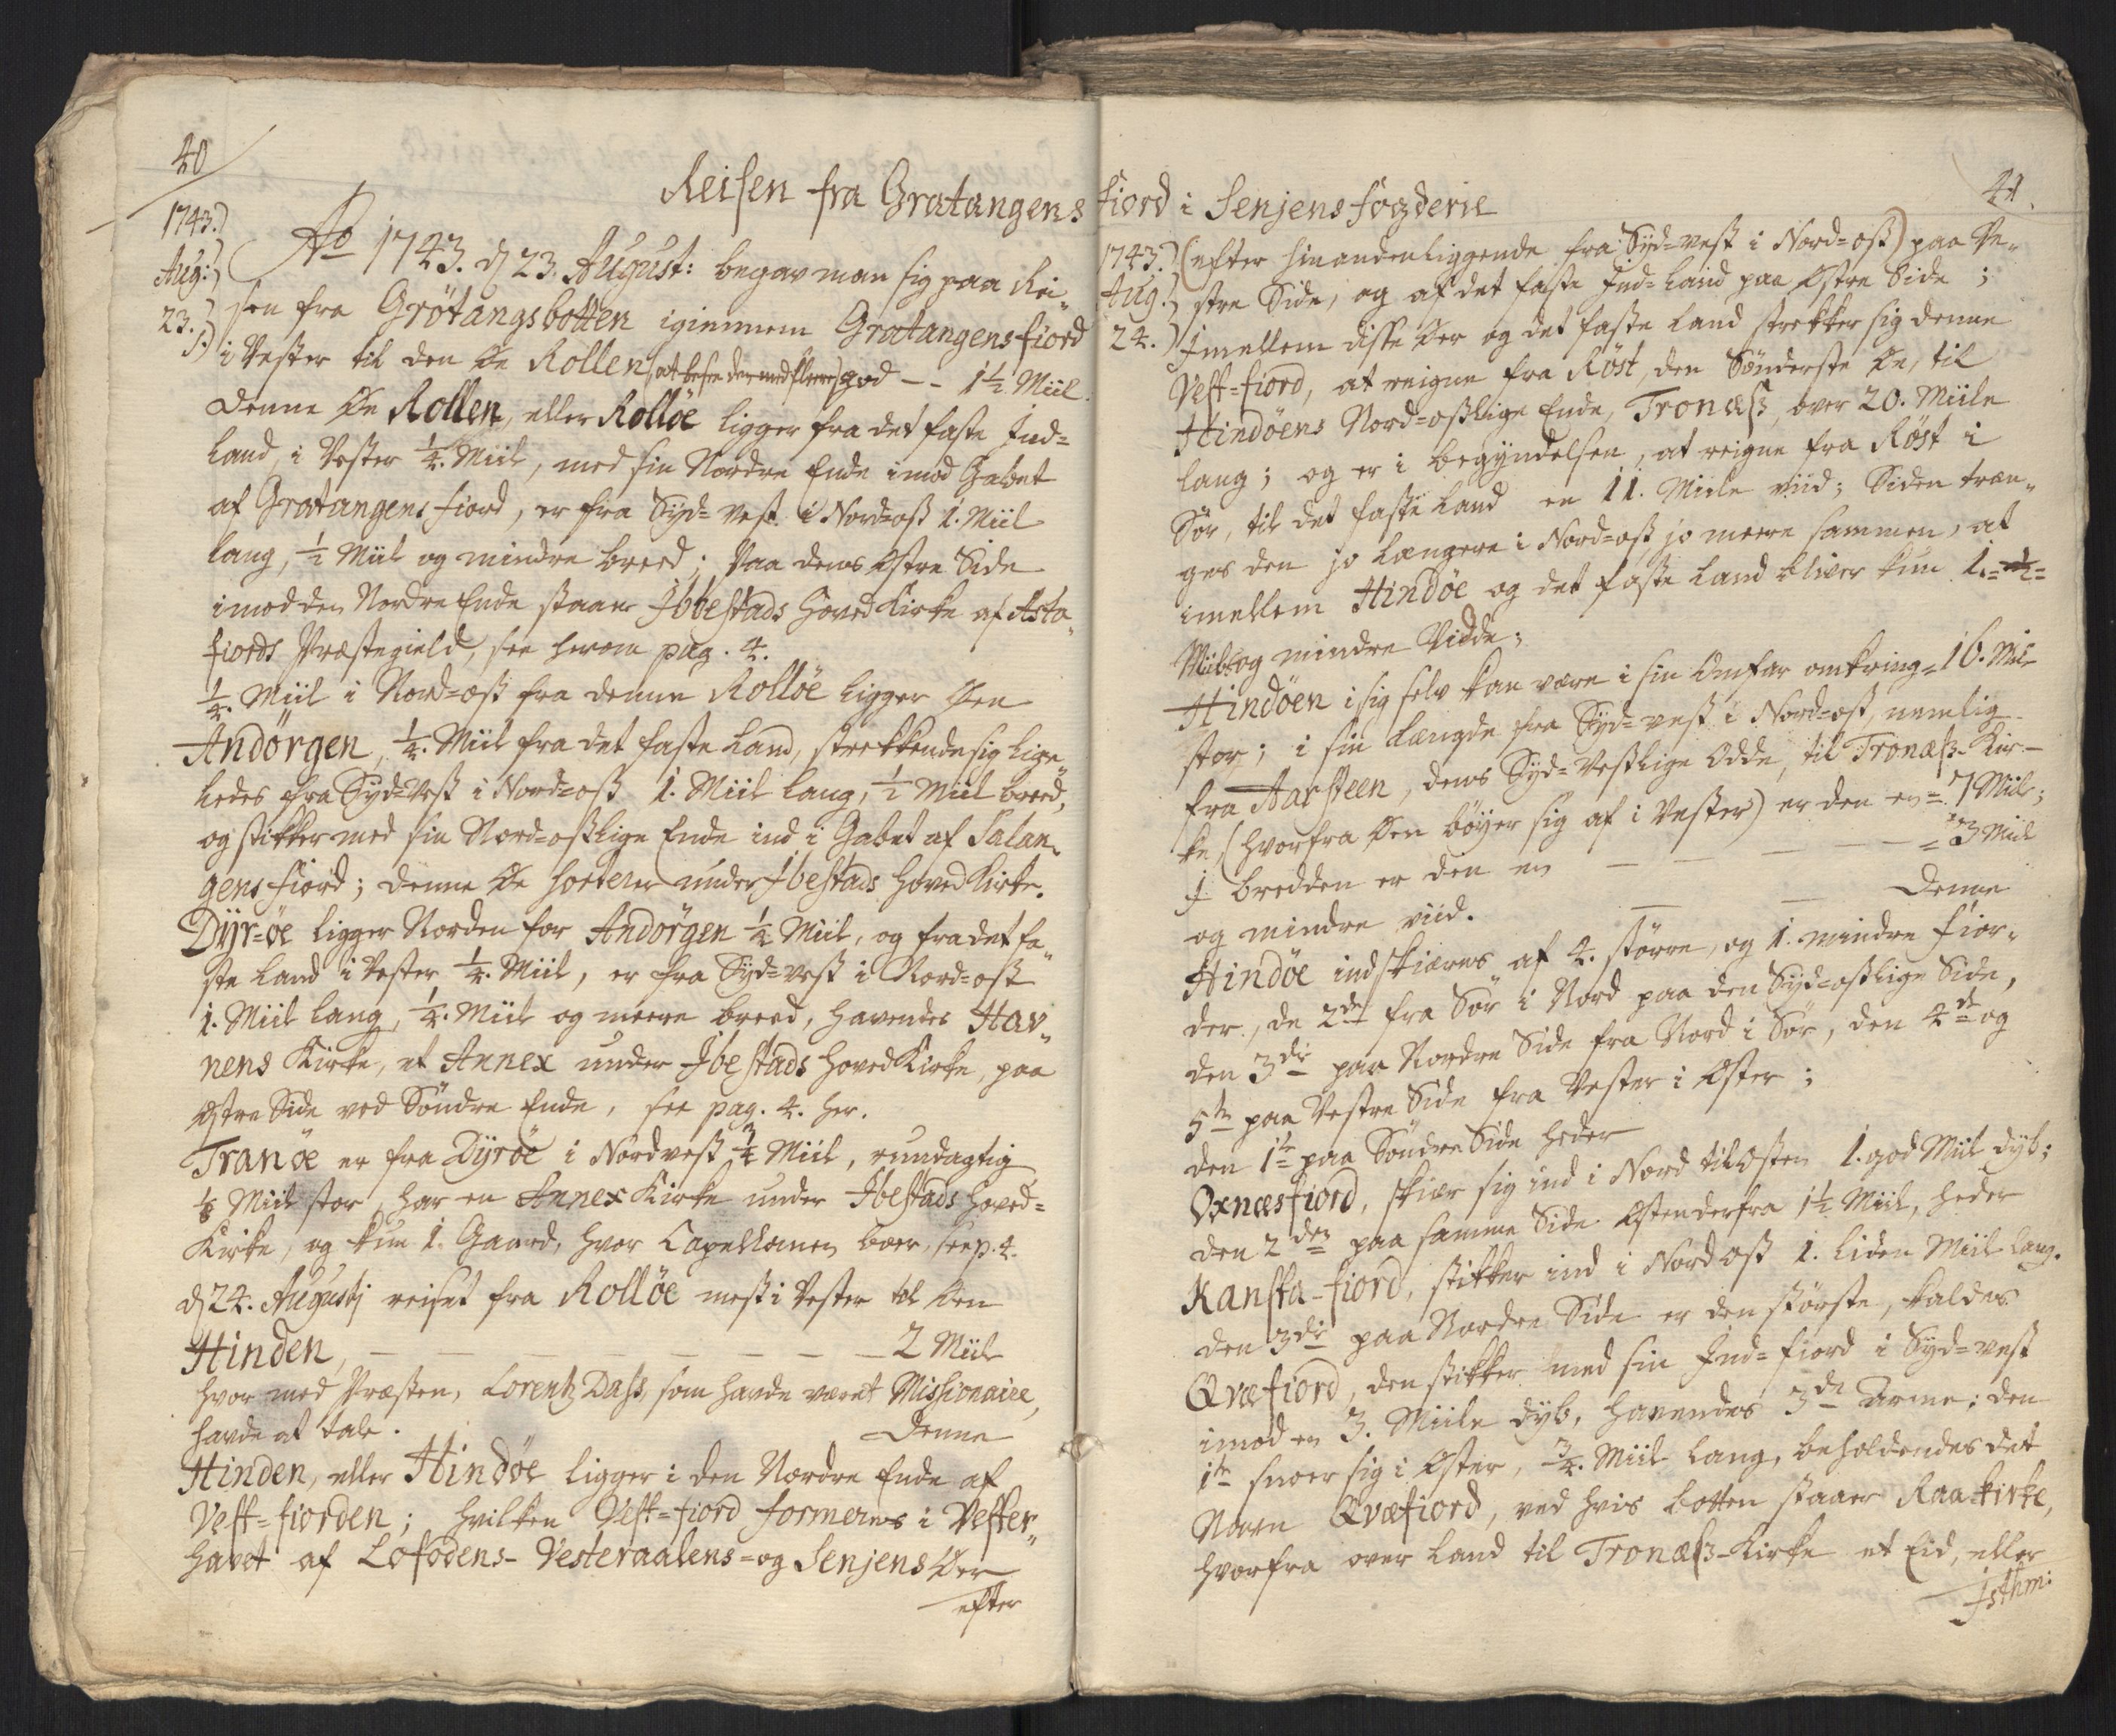 40
Reisen fra Gratangens
1743.)
Aug:)
23.)
Ao 1743. d 23. August: begav man sig paa Rei„
sen fra Grötangsbotten igiennem Gratangens fiord
i Vester til den Øe Rollen god -- 1½ Miil
Denne Øe Rollen, eller Rollöe ligger fra det faste Ind=
Land, i Vester ¼. Miil, med sin Nordre Ende imod Gabet
af Gratangens fiord, er fra Syd=Vest i Nord=ost 1. Miil
lang, ½ Miil og mindre breed; Paa dens Østre Side
imod den Nordre Ende staaer Ibbestads Hoved Kirke af Asta„
fiords Præstegield, see herom pag. 4.
¼. Miil i Nord=ost fra denne Rollöe ligger Øen
Andörgen, ¼. Miil fra det faste Land, strekkende sig lige„
ledes fra Syd=Vest i Nord=ost 1. Miil lang, ½ Miil breed,
og stikker med sin Nord=ostlige Ende ind i Gabet af Salan„
gens fiord; denne Øe horer under Ibestads Hoved Kirke.
Dyr=öe ligger Norden for Andörgen ¼ Miil, og fra det fa„
ste Land i Vester ¼. Miil, er fra Syd=vest i Nord=ost
1. Miil lang, ¼. Miil og meere breed, havendes Hav„
nens Kirke, et Annex under Ibestads Hoved Kirke, paa
Østre Side ved Söndre Ende, see pag. 4. her.
Tranöe er fra Dyröe i Nordvest ¾ Miil, rundagtig
⅛ Miil stor, har en Annex Kirke under Ibestads Hoved=
Kirke, og kun 1. Gaard, hvor Capellanen boer, see p. 4.
d 24. Augusti reiset fra Rollöe mest i Vester til Øen
Hinden, — — — — — — — — 2 Miil
hvor med Præsten, Lorentz Dass, som havde været Missionaire,
havde at tale. Denne
Hinden, eller Hindöe ligger i den Nordre Ende af
Vest=fiorden; hvilken Vest=fiord formeres i Vester„
havet af Lofodens- Vesteraalens=og Senjens Øer
efter
41.
fiord i Senjens fogderie
1743.)
Aug.)
24.)
(efter hinanden liggende fra Syd=vest i Nord=ost) paa Ve„
stre Side, og af det faste Ind=Land paa Østre Side;
Imellem disse Øer og det faste Land strekker sig denne
Vest=fiord, at reigne fra Röst, den Sönderste Øe, til
Hindöens Nord=ostlige Ende, Tronæs, over 20. Miile
lang; og er i begyndelsen, at reigne fra Röst i
Sör, til det faste Land en 11. Miile viid; Siden træn„
ges den jo længere i Nord=ost jo meere sammen, at
imellem Hindöe og det faste Land bliver kun 1.=
Miils og mindre Vidde;
Hindöen i sig selv kan være i sin Omfar omkring = 16. Mil
stor; i sin Længde fra Syd=vest i Nord=ost, nemlig
fra Aarsteen, dens Syd=Vestlige Odde, til Tronæs-Kir—
ke, (hvorfra Øen böyer sig af i Vester) er den en = 7 Miil;
I bredden er den en — — — — — = 3 Miil
og mindre viid. — — Denne
Hindöe indskiæres af 4. större, og 1. mindre fior„
der, de 2de fra Sör i Nord paa den Syd=ostlige Side,
den 3die paa Nordre Side fra Nord i Sör, den 4de og
5te paa Vestre Side fra Vester i Øster;
den 1te paa Söndre Side heder
Oxnæsfiord, skiær sig ind i Nord til Osten 1. god Miil dyb;
den 2den paa samme Side Østen derfra 1½ Miil, heder
Kansta-fiord, stikker ind i Nordost 1. liden Miil lang.
den 3die paa Nordre Side er den störste, kaldes
Qvæfiord, den stikker med sin Ind=fiord i Syd=vest
imod en 3. Miile dyb, havendes 3de Arme: den
1te snoer sig i Øster, ¾. Miil lang, beholdendes det
Navn Qvæfiord, ved hvis botten staaer Raa-kirke,
hvorfra over Land til Tronæs-Kirke et Eid, eller
Isthm: